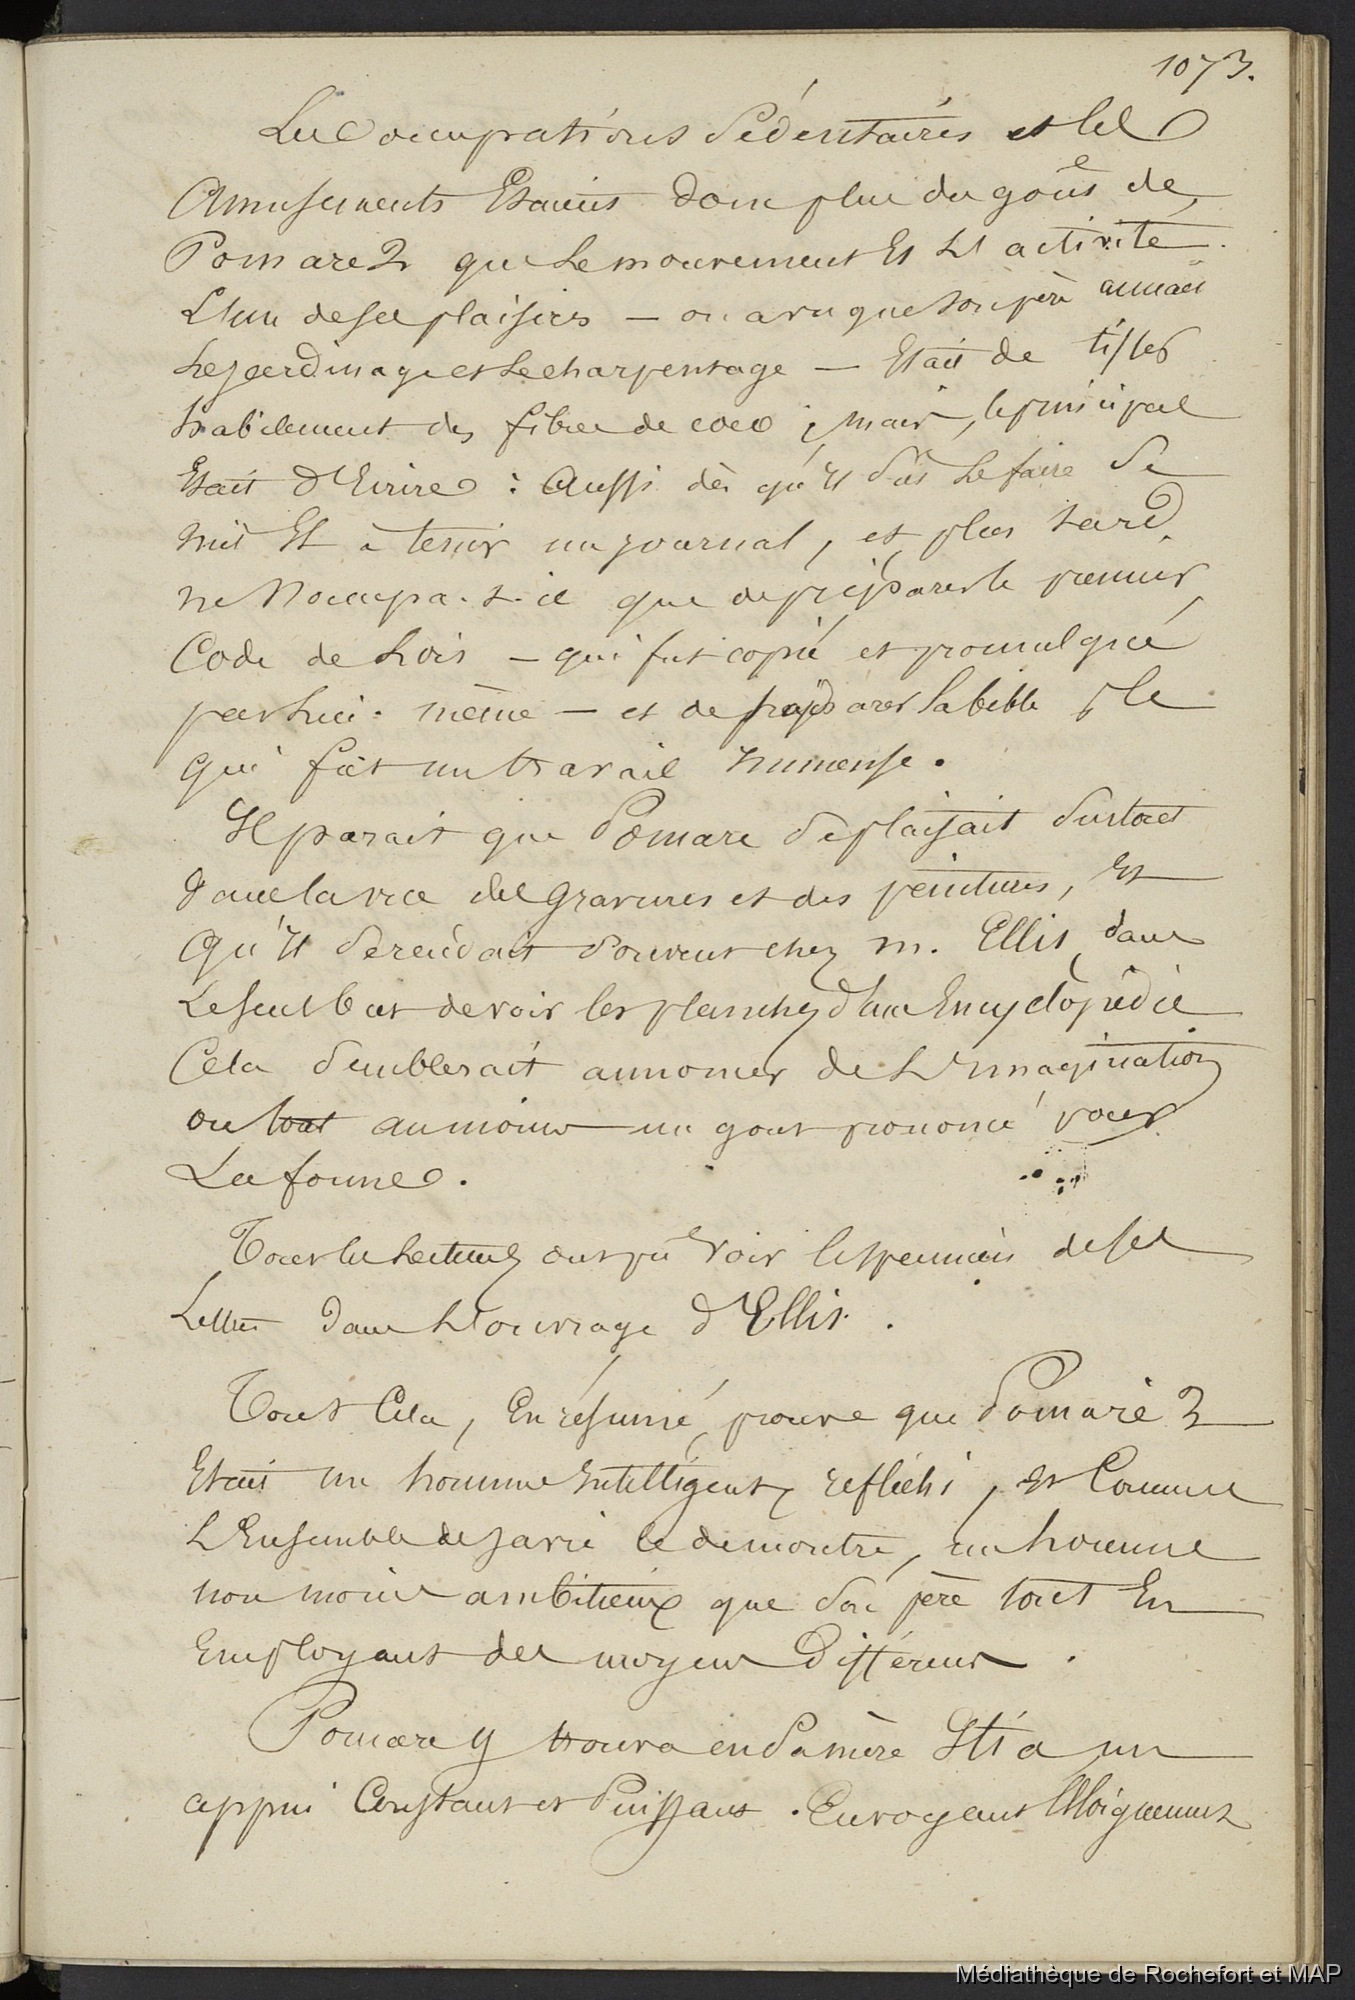 1073.
Les occupations sédentaires et les
Amusements Etaient donc plus du goût de
Pomare 2 que Le mouvement Et L'activité.
L'un de ses plaisirs — on a vu que son père aimait
Le jardinage et Le charpentage — Etait de tisser
habilement des fibres de coco ; mais, le principal
Etait d'Ecrire : Aussi dès qu'Il sut Le faire se
mit Il à tenir un journal, et plus tard,
ne s'occupa-t-il que de préparer le premier
Code de Lois — qui fut copié et promulgué
par Lui-même — et de préparer la bible, ce
qui fut un travail Immense.
Il parait que Pomare se plaisait surtout
dans la vue des gravures et des peintures, Et
qu'Il se rendait souvent chez m. Ellis, dans
Le seul but de voir les planches d'une Encyclopédie
Cela semblerait annoncer de L'Imagination
ou tout au moins un gout prononcé pour
La forme.
Tous les Lecteurs ont pu voir le specimen de ses
Lettres dans L'ouvrage d'Ellis.
Tout Cela, En résumé, prouve que Pomare 2
Etait un homme Intelligent, reflechi, et Comme
L'Ensemble de sa vie le demontre, un homme
non moins ambitieux que son père tout En
Employant des moyens Différents.
Pomare y trouva en sa mère Itia un
appui Constant et Puissant. En voyant l'Eloignement
Médiathèque de Rochefort et MAP